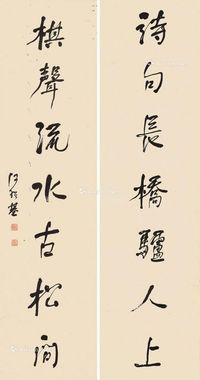 詩句長橋驢人上
棋聲流水古松間